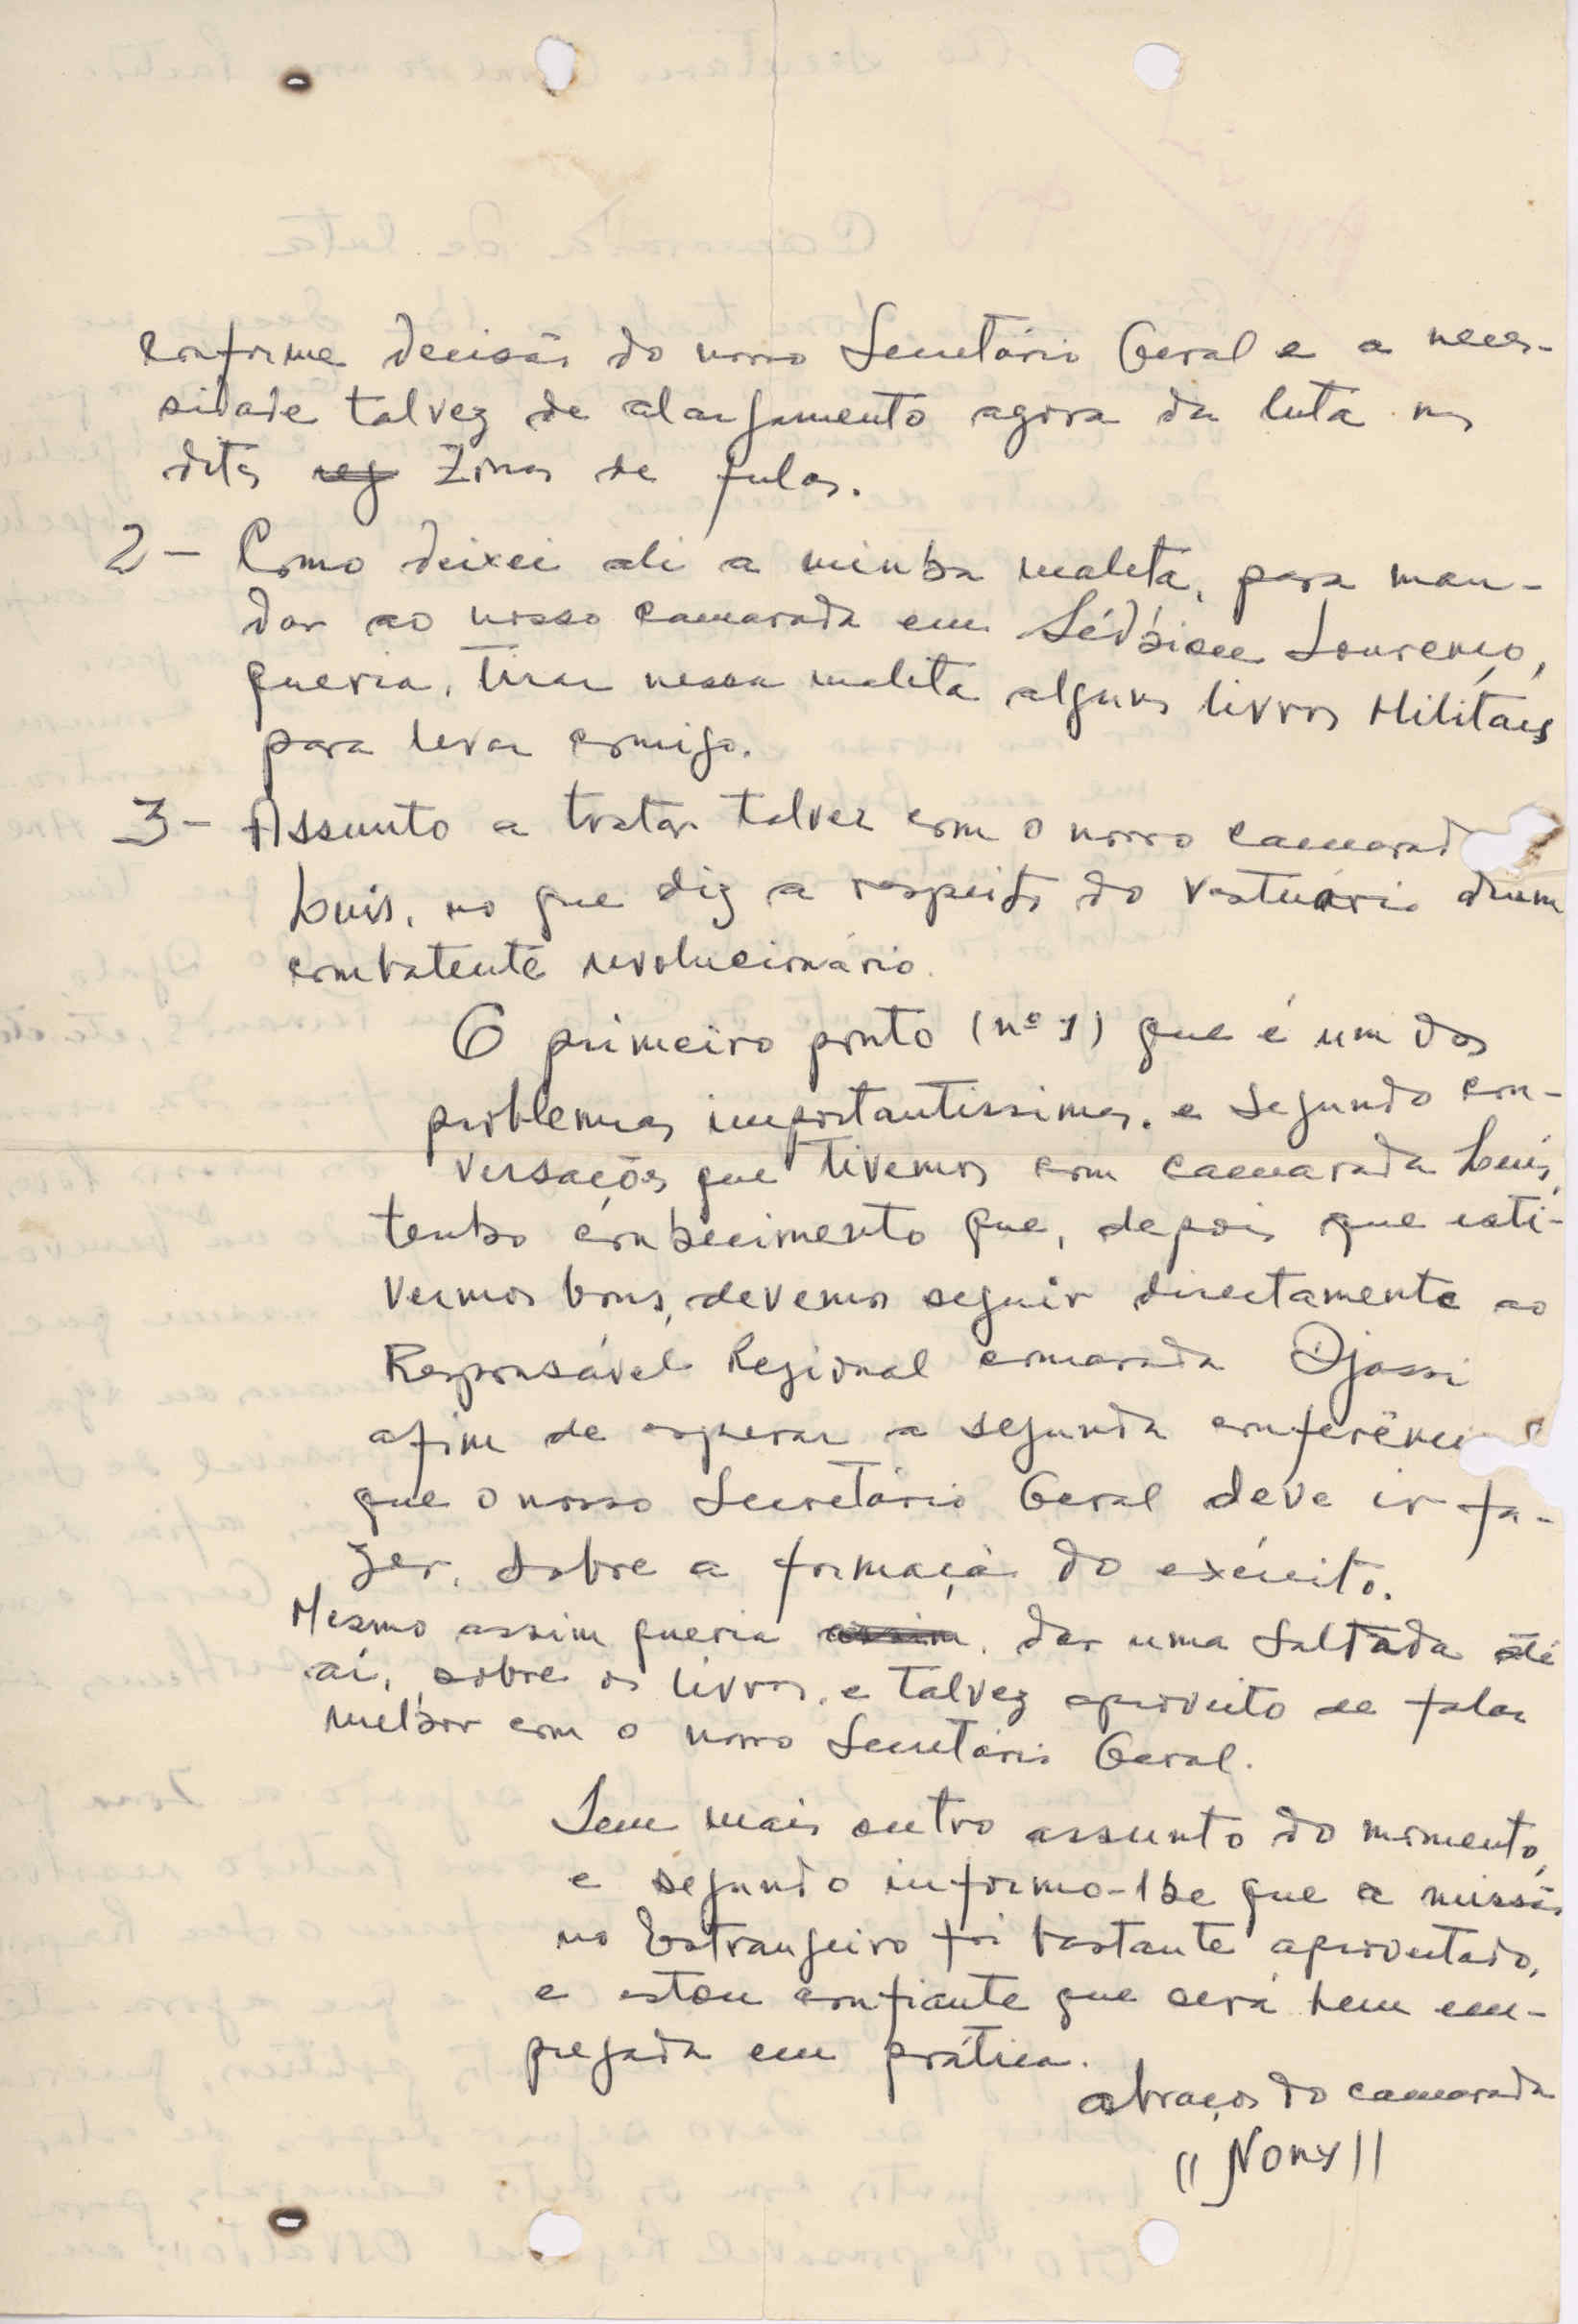 conforme decisão do nosso Secretário Geral e a neces-
sidade talvez de alargamento agora da luta nas
ditas reg Zonas de fulas.
2 - Como deixei ali a minha maleta, para man-
dar ao nosso camarada em Lourenço,
queria, tirar nessa maleta alguns livros Militares
para levar comigo.
3 - Assunto a tratar talvez com o nosso camarad
Luis, no que diz a respeito do vestuário dum
combatente revolucionário.
O primeiro ponto (nº 1) que é um dos
problemas importantissimos. e segundo con-
versações que tivemos com camarada Luis,
tenho conhecimento que, depois que esti-
vermos bons, devemos seguir directamente ao
Responsável Regional camarada Djassi
afim de esperar a segunda conferênci
que o nosso Secretário Geral deve ir fa-
zer, sobre a formação do exército.
Mesmo assim queria assim, dar uma saltada até
aí, sobre os livros, e talvez aproveito de falar
melhor com o nosso Secretário Geral.
Sem mais outro assunto do momento,
e segundo informo-lhe que a missão
no Estrangeiro foi bastante aproveitado,
e estou confiante que será bem em-
pregada em prática.
abraços do camarada
"Nony"